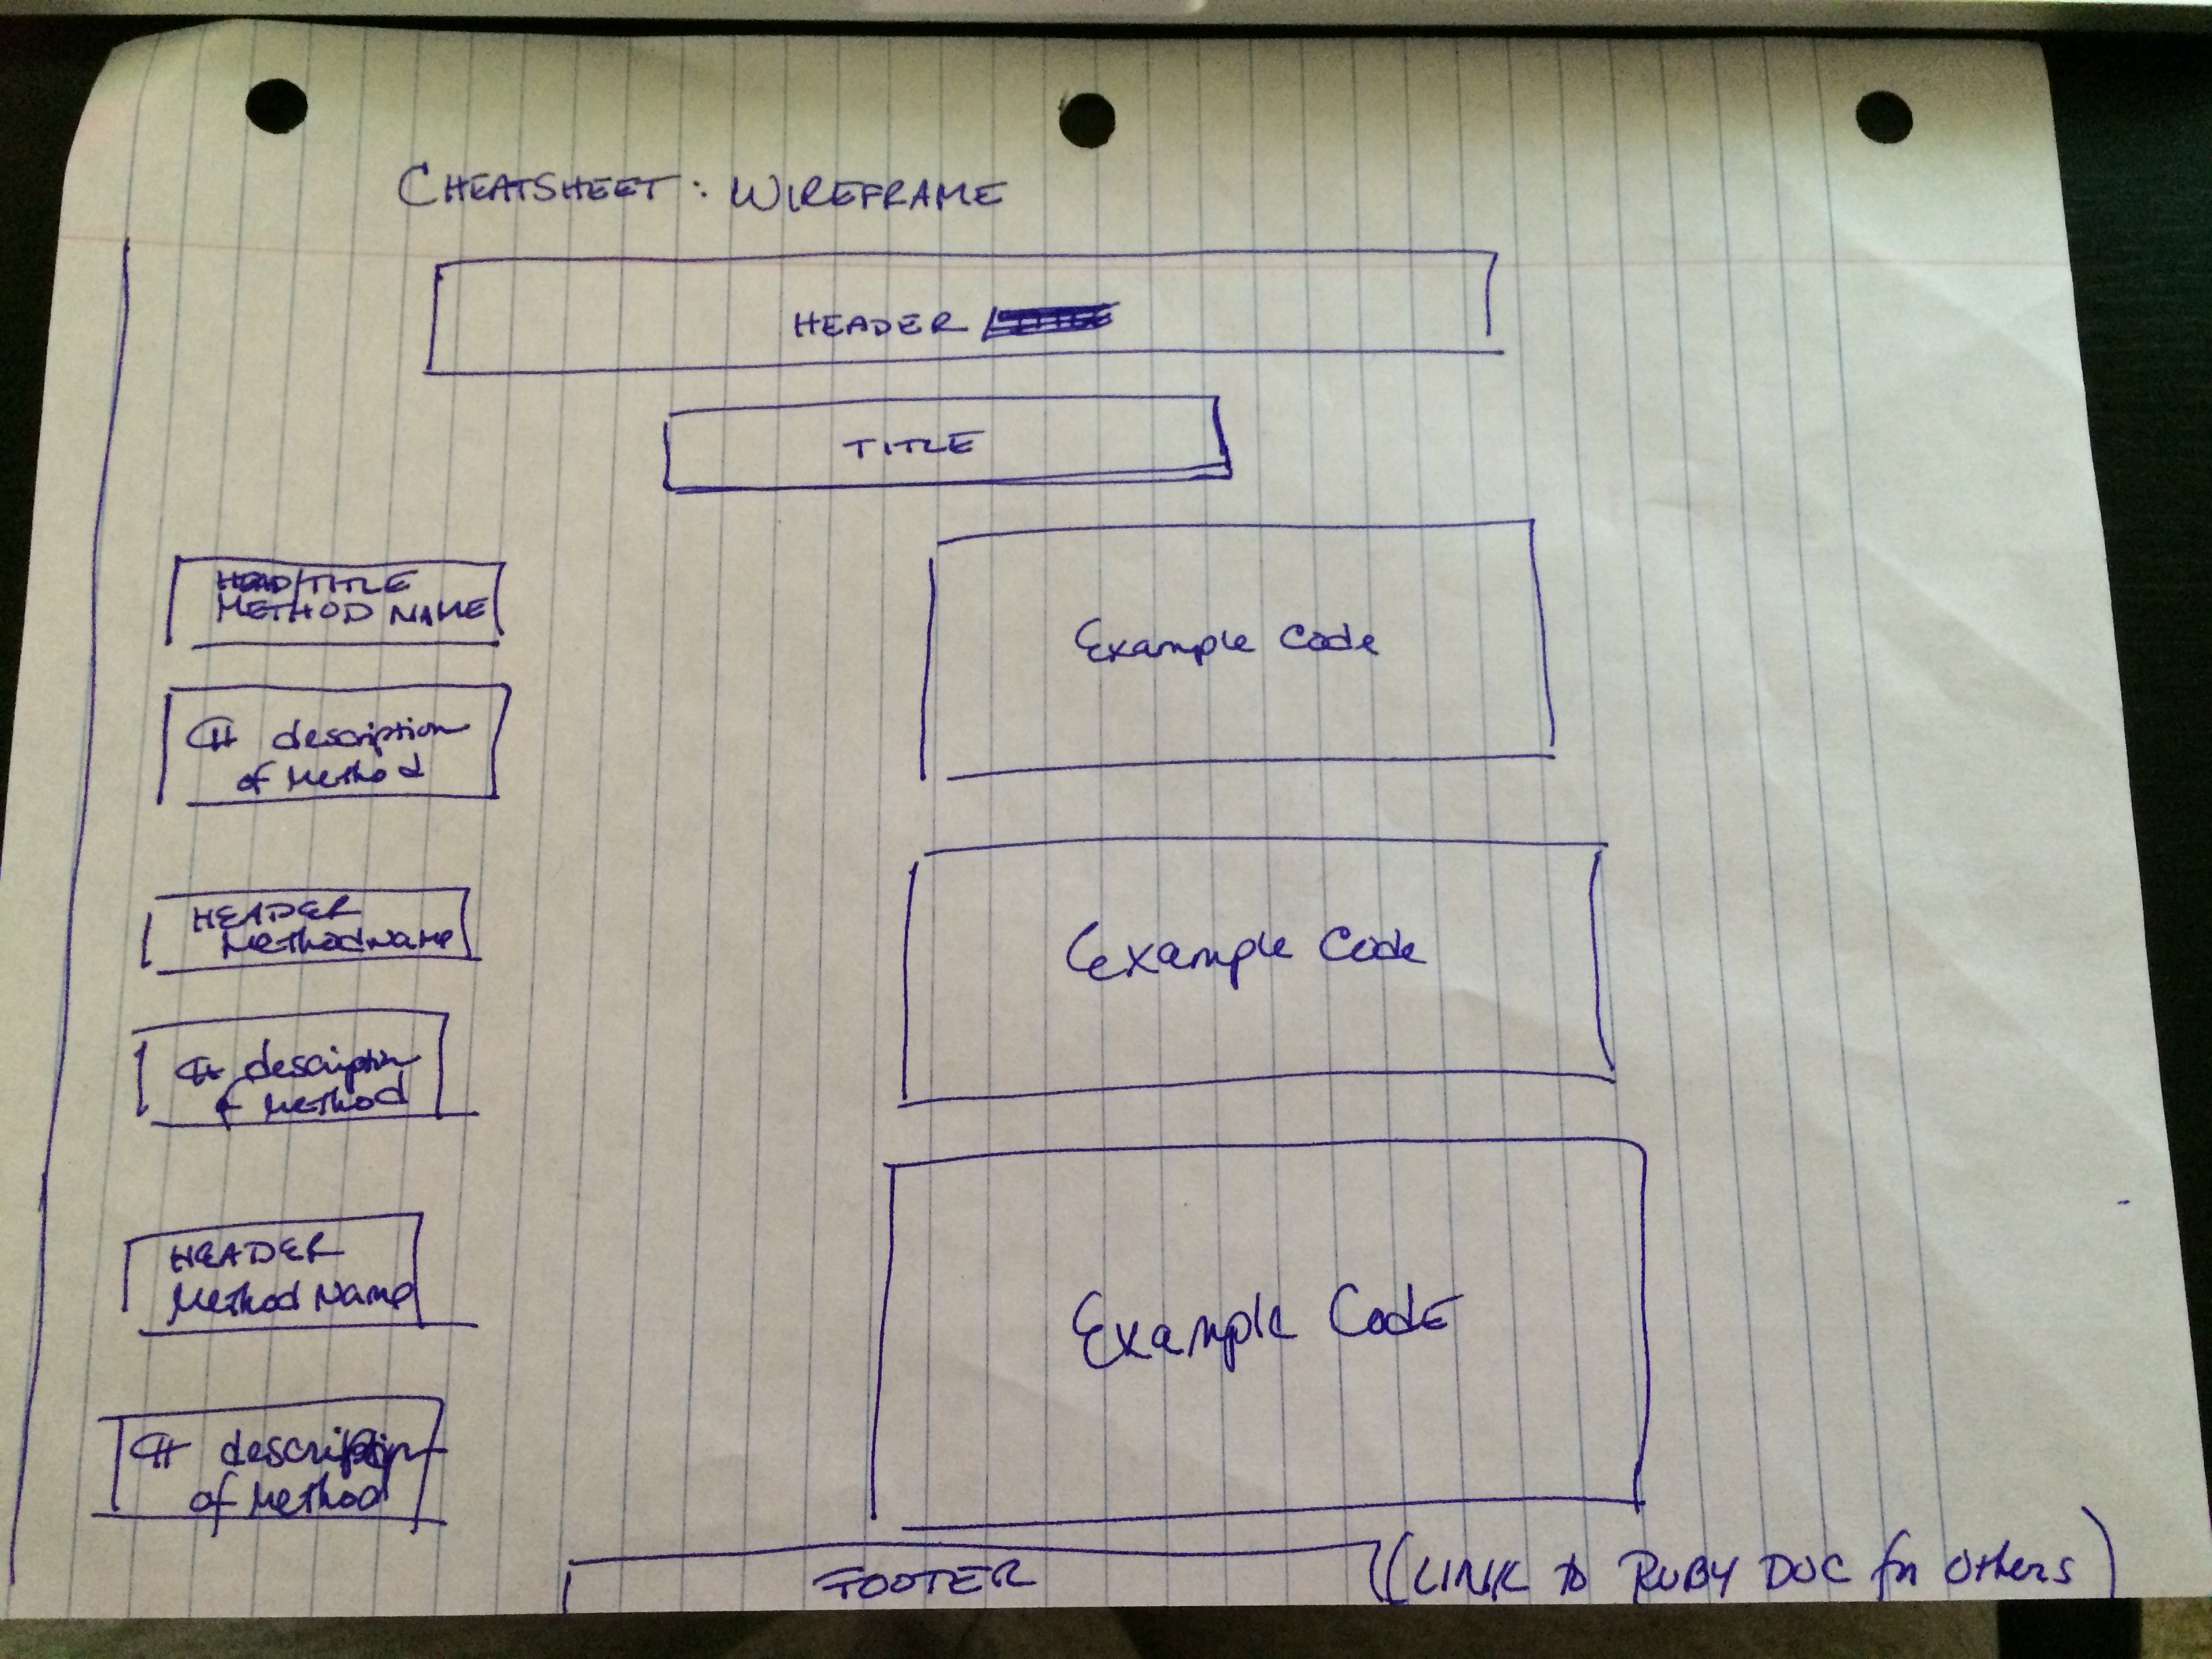 CHEATSHEET: WIREFRAME
HEADER
TITLE
METHOD NAME
¶ description
of Method
Example Code
HEADER
Method Name
¶ description
of Method
Example Code
HEADER
Method Name
¶ description
of Method
Example Code
FOOTER (LINK to RUBY DOC for others)